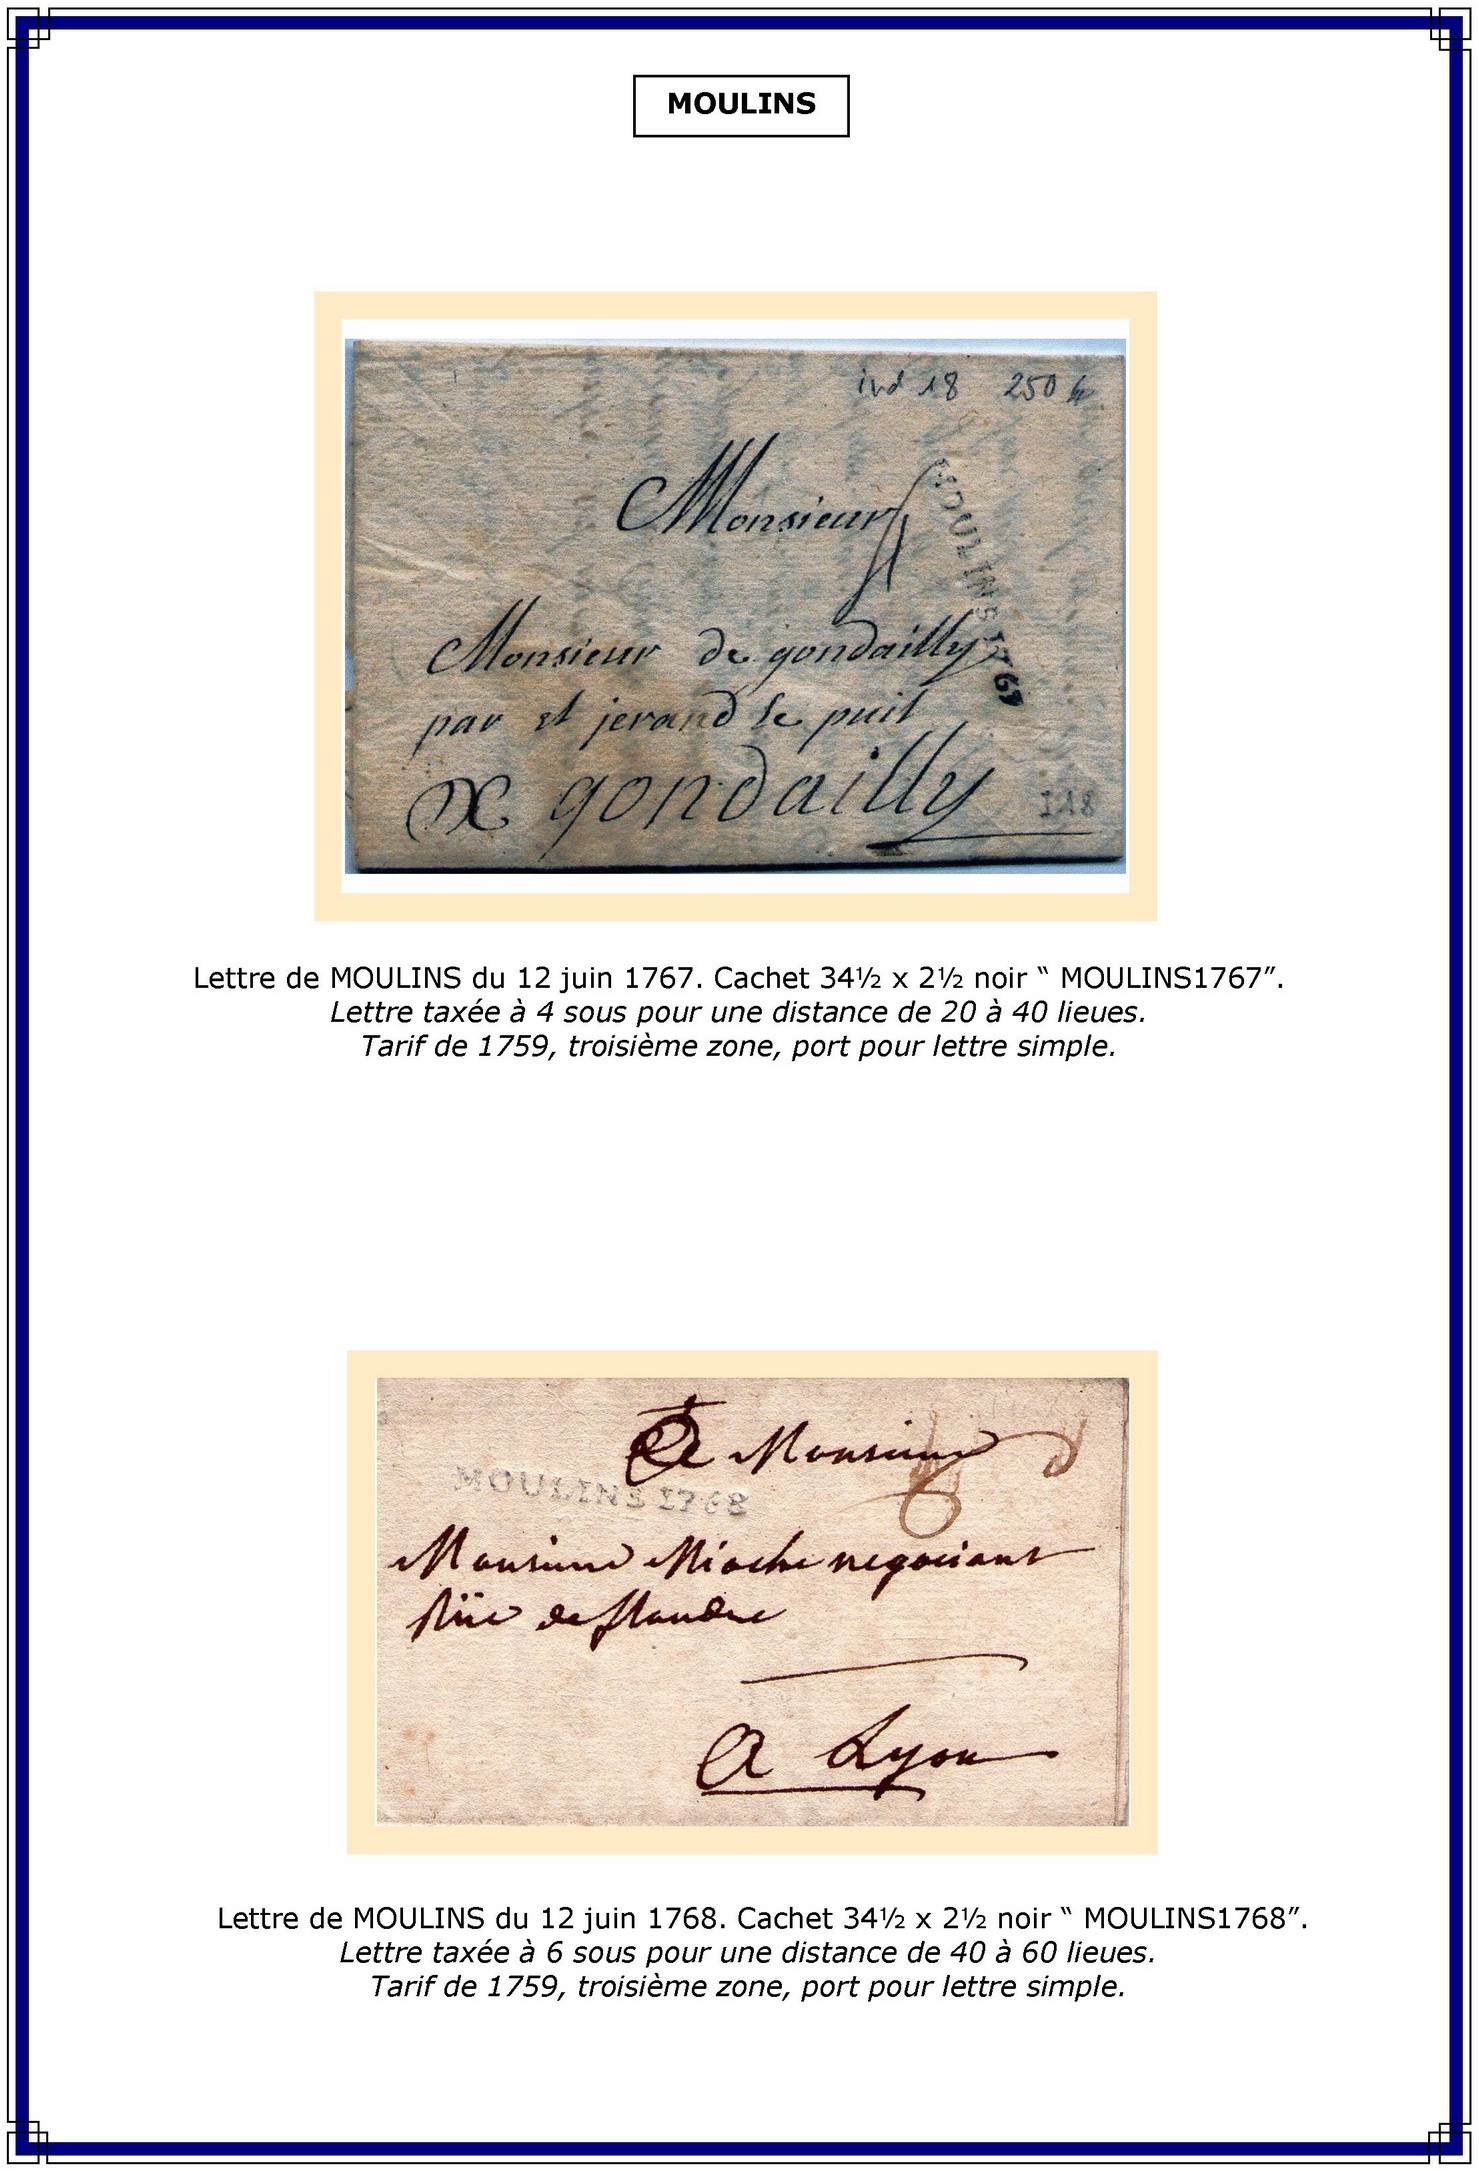 MOULINS
ind 18 250
MOULINS1767
Monsieur
4
Monsieur de gondailly
par st jerand le puil
A gondailly
118
Lettre de MOULINS du 12 juin 1767. Cachet 34½ x 2½ noir “ MOULINS1767”.
Lettre taxée à 4 sous pour une distance de 20 à 40 lieues.
Tarif de 1759, troisième zone, port pour lettre simple.
A Monsieur
MOULINS 1768
6
Monsieur Mioche negociant
Rüe de flandre
A Lyon
Lettre de MOULINS du 12 juin 1768. Cachet 34½ x 2½ noir “ MOULINS1768”.
Lettre taxée à 6 sous pour une distance de 40 à 60 lieues.
Tarif de 1759, troisième zone, port pour lettre simple.